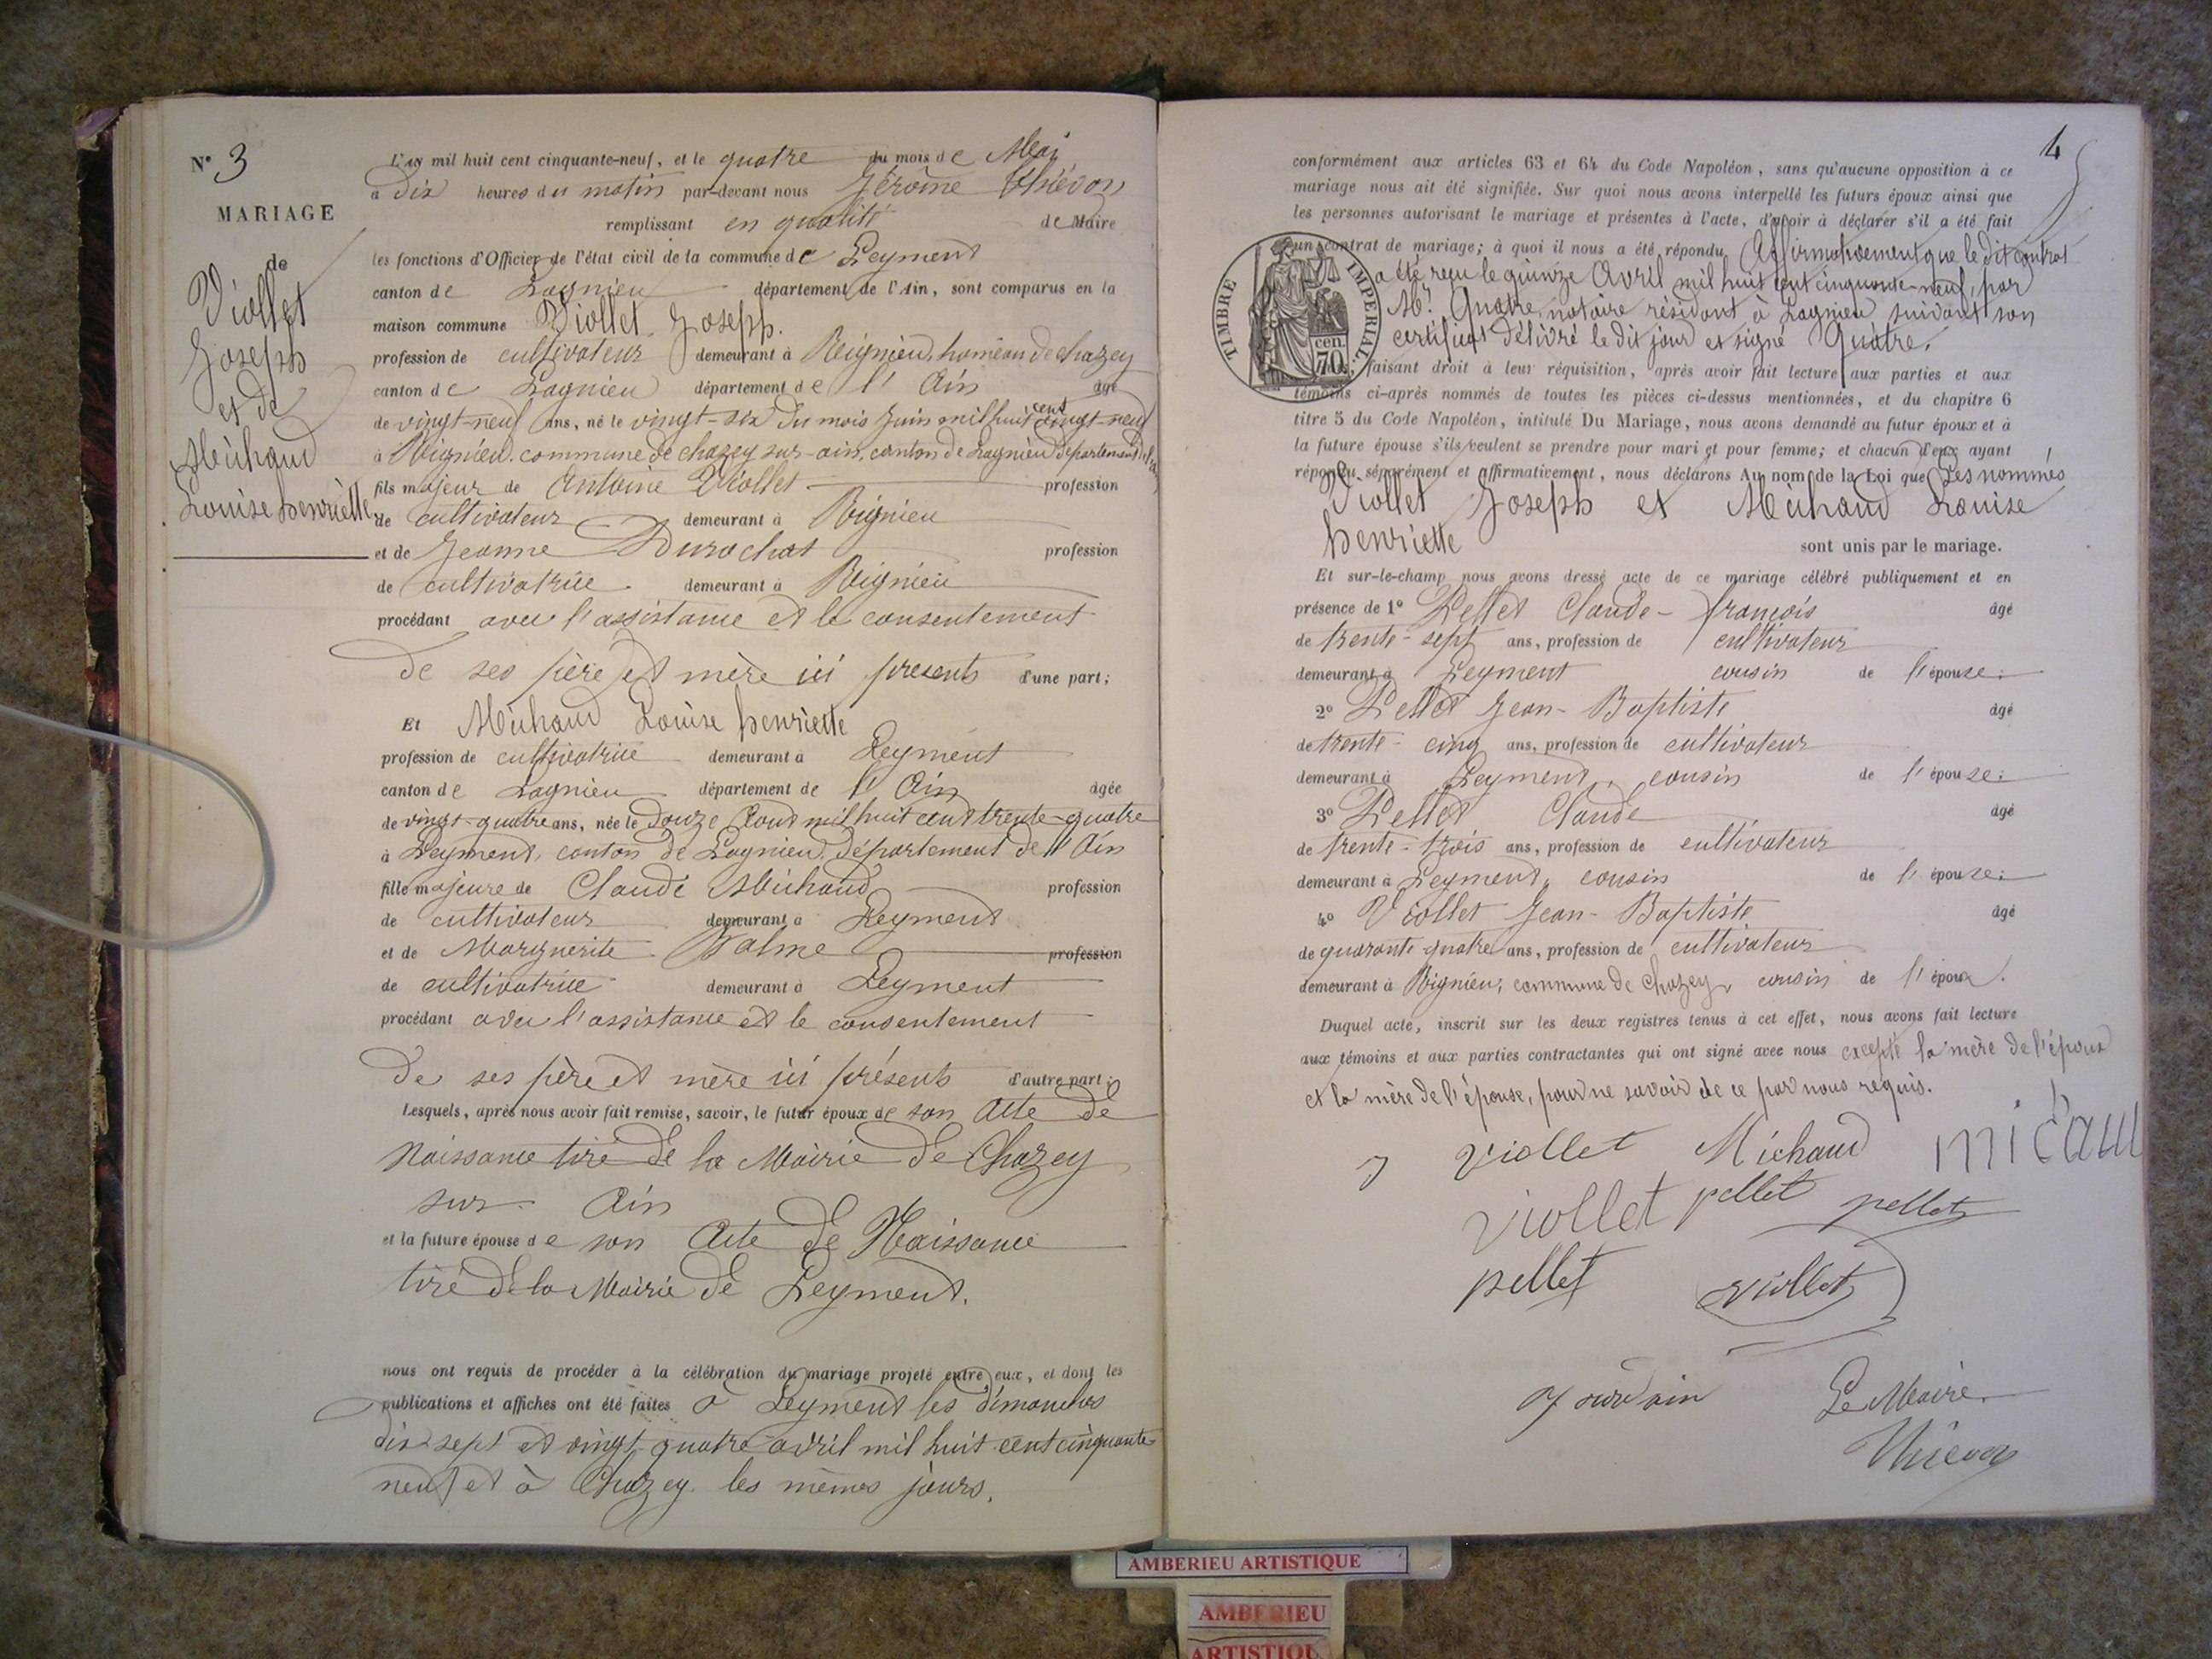 N° 3
MARIAGE
de
Viollet
Joseph
et de
Michaud
Louise henriette
L'an mil huit cent cinquante-neuf, et le quatre du mois de Mai
à dix heures du matin par-devant nous Jérôme Thiévon
remplissant en qualité de Maire
les fonctions d'Officier de l'état civil de la commune de Leyment
canton de Lagnieu département de l'Ain, sont comparus en la
maison commune Viollet Joseph.
profession de cultivateur demeurant à Rignieu, hameau de chazey
canton de Lagnieu département de l'Ain âgé
de vingt-neuf ans, né le vingt-six du mois Juin mil huit cent vingt-neuf
à Rignieu commune de chazey sur-ain, canton de Lagnieu département de l'ain
fils majeur de Antoine Viollet profession
de cultivateur demeurant à Rignieu
et de Jeanne Durochat profession
de cultivatrice demeurant à Rignieu
procédant avec l'assistance et le consentement
de ses père et mère ici présents d'une part;
Et Michaud Louise henriette
profession de cultivatrice demeurant à Leyment
canton de Lagnieu département de l'Ain âgée
de vingt-quatre ans, née le douze Aout mil huit cent trente-quatre
à Leyment, canton de Lagnieu, département de l'Ain
fille majeure de Claude Michaud profession
de cultivateur demeurant à Leyment
et de Marguerite Balme profession
de cultivatrice demeurant à Leyment
procédant avec l'assistance et le consentement
de ses père et mère ici présents d'autre part;
Lesquels, après nous avoir fait remise, savoir, le futur époux de son Acte de
Naissance tiré de la Mairie de Chazey
sur-Ain
et la future épouse de son Acte de Naissance
tiré de la Mairie de Leyment.
nous ont requis de procéder à la célébration du mariage projeté entre eux, et dont les
publications et affiches ont été faites à Leyment les dimanches
dix-sept et vingt-quatre avril mil huit cent cinquante
neuf et à Chazey les mêmes jours.
4
conformément aux articles 63 et 64 du Code Napoléon, sans qu'aucune opposition à ce
mariage nous ait été signifiée. Sur quoi nous avons interpellé les futurs époux ainsi que
les personnes autorisant le mariage et présentes à l'acte, d'avoir à déclarer s'il a été fait
un contrat de mariage; à quoi il nous a été répondu Affirmativement que le dit contrat
a été reçu le quinze Avril mil huit cent cinquante-neuf, par
Me Quatre, notaire résidant à Lagnieu suivant son
certificat délivré le dit jour et signé Quatre.
TIMBRE IMPERIAL.
70 cen.
faisant droit à leur réquisition, après avoir fait lecture aux parties et aux
témoins ci-après nommés de toutes les pièces ci-dessus mentionnées, et du chapitre 6
titre 5 du Code Napoléon, intitulé Du Mariage, nous avons demandé au futur époux et à
la future épouse s'ils veulent se prendre pour mari et pour femme; et chacun d'eux ayant
répondu séparément et affirmativement, nous déclarons Au nom de la Loi que Les nommés
Viollet Joseph et Michaud Louise
henriette sont unis par le mariage.
Et sur-le-champ nous avons dressé acte de ce mariage célébré publiquement et en
présence de 1° Pellet Claude-françois âgé
de trente-sept ans, profession de cultivateur
demeurant à Leyment cousin de l'épouse;
2° Pellet Jean-Baptiste âgé
de trente-cinq ans, profession de cultivateur
demeurant à Leyment, cousin de l'épouse;
3° Pellet Claude âgé
de trente-trois ans, profession de cultivateur
demeurant à Leyment, cousin de l'épouse;
4° Viollet Jean-Baptiste âgé
de quarante-quatre ans, profession de cultivateur
demeurant à Rignieu, commune de Chazey, cousin de l'époux.
Duquel acte, inscrit sur les deux registres tenus à cet effet, nous avons fait lecture
aux témoins et aux parties contractantes qui ont signé avec nous excepté la mère de l'époux
et la mère de l'épouse, pour ne savoir de ce par nous requis.
J viollet Michaud micau
viollet pellet pellet
pellet viollet
Le Maire
Thiévon
AMBERIEU ARTISTIQUE
AMBERIEU
ARTISTIQU